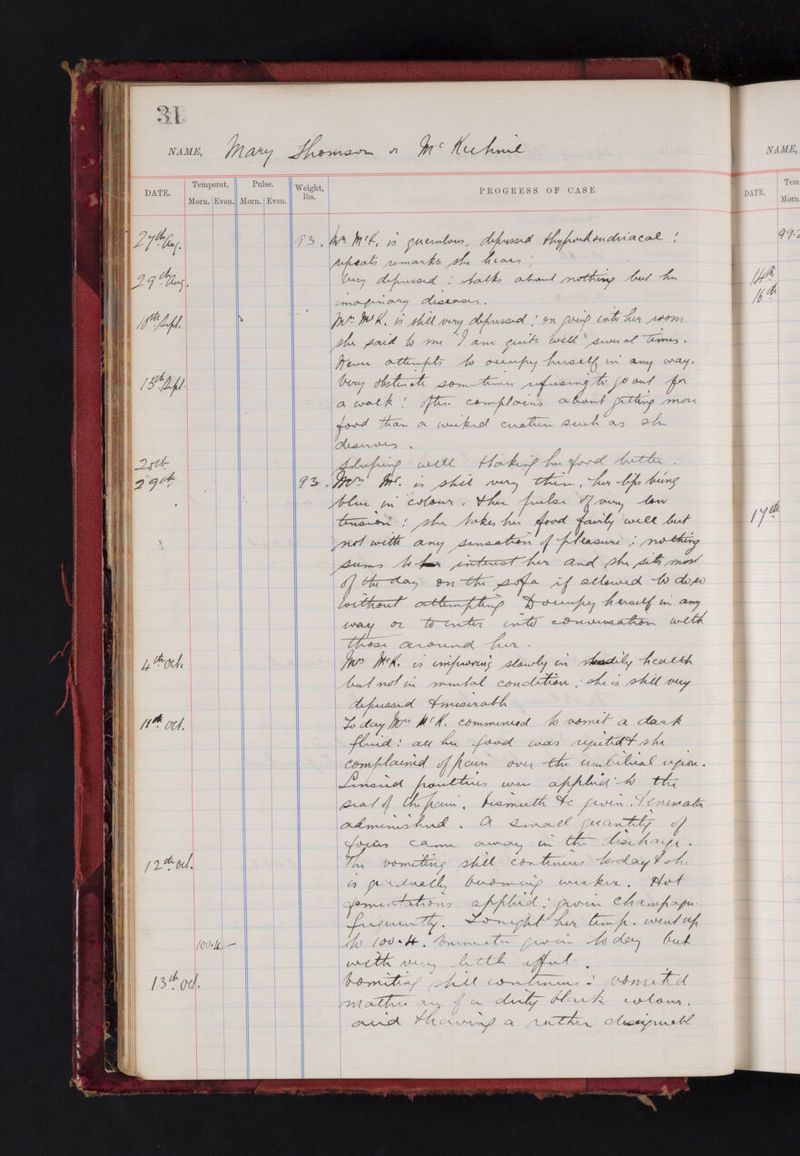 31
NAME, Mary Thomson or McKechnie
NAME,
DATE. Temperat. Pulse. Weight, lbs. PROGRESS OF CASE
Morn. Even. Morn. Even.
DATE. Tem
Morn.
27th Aug. 93. Mrs McK. is querulous, depressed & hypochondriacal ;
repeats remarks she hears ;
29th Aug. Very depressed : talks about nothing but her
imaginary diseases.
10th Sept. Mrs McK. is still very depressed ; on going into her room
she said to me "I am quite well" several times.
Never attempts to occupy herself in any way.
15th Sept. Very obstinate sometimes refusing to go out for
a walk : often complains about getting more
food than a wicked creature such as she
deserves.
Sleeping well & taking her food better.
29th 93. Mrs Mc. is still very thin, her lips being
blue in colour, & her pulse of very low
tension : she takes her food fairly well but
not with any sensation of pleasure ; nothing
seems to interest her and she sits most
of the day on the sofa if allowed to do so
without attempting to occupy herself in any
way or to enter into conversation with
those around her.
4th Oct. Mrs McK. is improving slowly in bodily health
but not in mental condition : she is still very
depressed & miserable
11th Oct. To day Mrs McK. commenced to vomit a dark
fluid : all her food was rejected & she
complained of pain over the umbilical region.
Linseed poultices were applied to the
seat of the pain. Bismuth &c given. & enemata
administered. A small quantity of
faeces came away in the discharge.
12th Oct. The vomiting still continues today & she
is gradually becoming weaker. Hot
fomentations applied : given champagne
frequently. Tonight her temp. went up
100.4 to 100.4. Enemata given today but
with very little effect.
13th Oct. Vomiting still continues : vomited
matter any of a dirty black colour.
acid & having a rather disagreeabl
99.2
14th
16th
17th